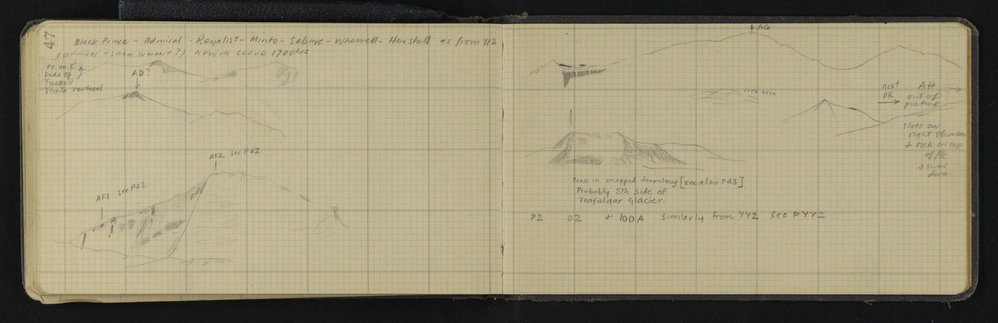 47
Black Prince - Admiral - Royalist - Minto - Sabine - Whewell - Herschell as from YYZ
SNOW SUMMIT?) NOW IN CLOUD 1700hrs
PK on E
side of
Tucker
South
AD?
AF2 see P42
AF1 see P42
↓ AG
next
PK
AH
out of
picture
Slots on
right shoulder
+ rock on top
of PK
Peak in unmapped territory [see also P43]
Probably Sth side of
Trafalgar Glacier.
P2 O2 + 100A similarly from YYZ see PYYZ